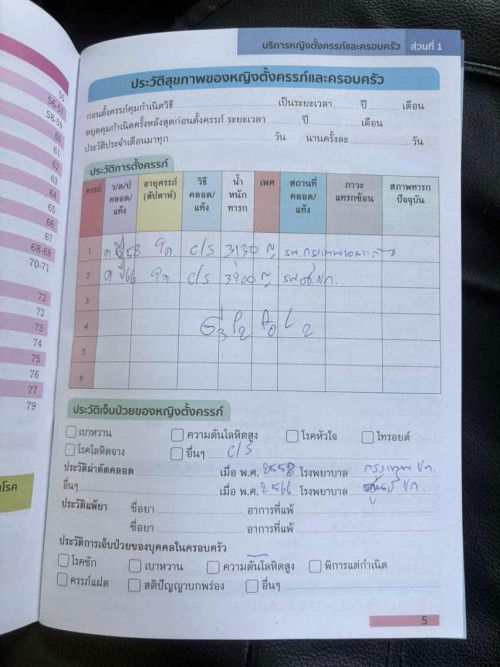 บริการหญิงตั้งครรภ์และครอบครัว ส่วนที่ 1
ประวัติสุขภาพของหญิงตั้งครรภ์และครอบครัว
ก่อนตั้งครรภ์คุมกำเนิดวิธี เป็นระยะเวลา ปี เดือน
หยุดคุมกำเนิดครั้งหลังสุดก่อนตั้งครรภ์ ระยะเวลา ปี เดือน
ประวัติประจำเดือนมาทุก วัน นานครั้งละ วัน
ประวัติการตั้งครรภ์
ครรภ์ ว/ด/ป คลอด/แท้ง อายุครรภ์ (สัปดาห์) วิธีคลอด/แท้ง น้ำหนักทารก เพศ สถานที่คลอด/แท้ง ภาวะแทรกซ้อน สภาพทารกปัจจุบัน
1 58 C/S 3130 ญ รพ.
2 66 C/S 3900 ญ รพ.
3
4 G3P2A0L2
5
6
ประวัติเจ็บป่วยของหญิงตั้งครรภ์
เบาหวาน ความดันโลหิตสูง โรคหัวใจ ไทรอยด์
โรคโลหิตจาง อื่นๆ
ประวัติผ่าตัดคลอด C/S เมื่อ พ.ศ. 2558 โรงพยาบาล
อื่นๆ เมื่อ พ.ศ. 2566 โรงพยาบาล
ประวัติแพ้ยา ชื่อยา อาการที่แพ้
ชื่อยา อาการที่แพ้
ประวัติการเจ็บป่วยของบุคคลในครอบครัว
โรคชัก เบาหวาน ความดันโลหิตสูง พิการแต่กำเนิด
ครรภ์แฝด สติปัญญาบกพร่อง อื่นๆ
5
56-57
58-59
60
61
62
63
64
65
66
67
68-69
70-71
72
72
73
74
75
76
77
79